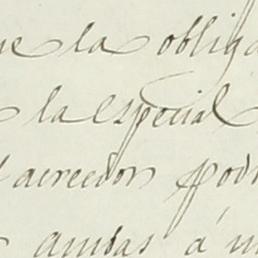 que la obliga
la especial
acreedor pod
ambas á